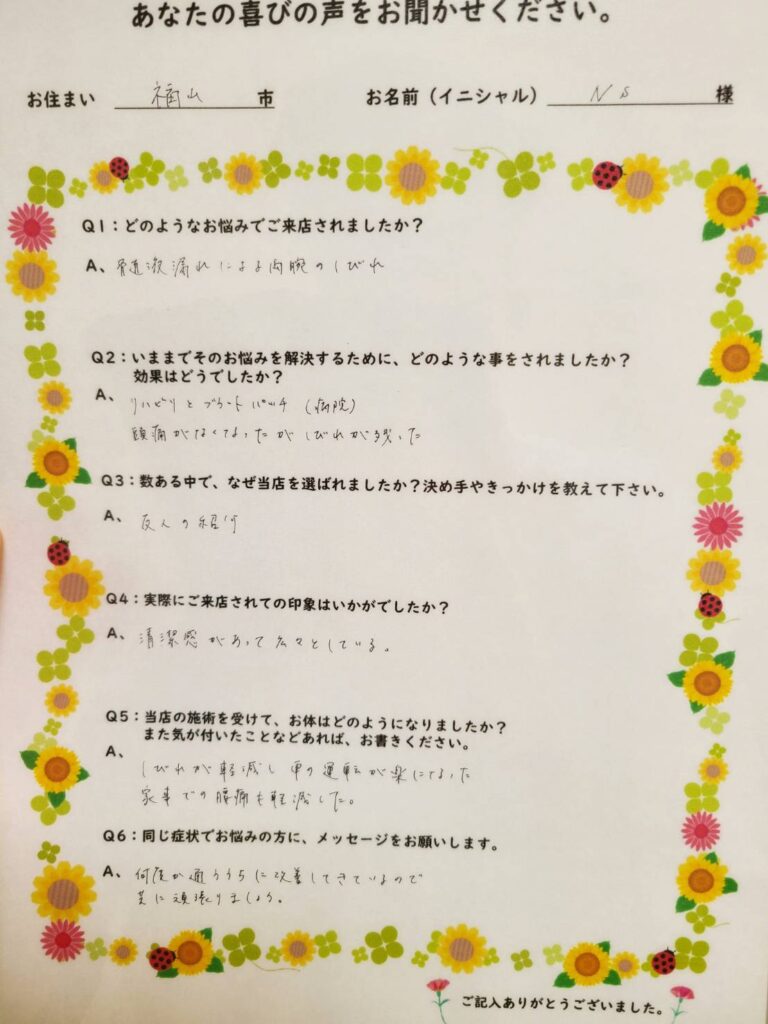 あなたの喜びの声をお聞かせください。
お住まい 福山 市 お名前（イニシャル） N S 様
Q1：どのようなお悩みでご来店されましたか？
A、骨髄液漏れによる両腕のしびれ
Q2：いままでそのお悩みを解決するために、どのような事をされましたか？
効果はどうでしたか？
A、リハビリとブラッドパッチ（病院）
頭痛がなくなったがしびれが残った
Q3：数ある中で、なぜ当店を選ばれましたか？決め手やきっかけを教えて下さい。
A、友人の紹介
Q4：実際にご来店されての印象はいかがでしたか？
A、清潔感があって広々としている。
Q5：当店の施術を受けて、お体はどのようになりましたか？
また気が付いたことなどあれば、お書きください。
A、しびれが軽減し車の運転が楽になった
家事での腰痛も軽減した。
Q6：同じ症状でお悩みの方に、メッセージをお願いします。
A、何度か通ううちに改善してきているので
共に頑張りましょう。
ご記入ありがとうございました。